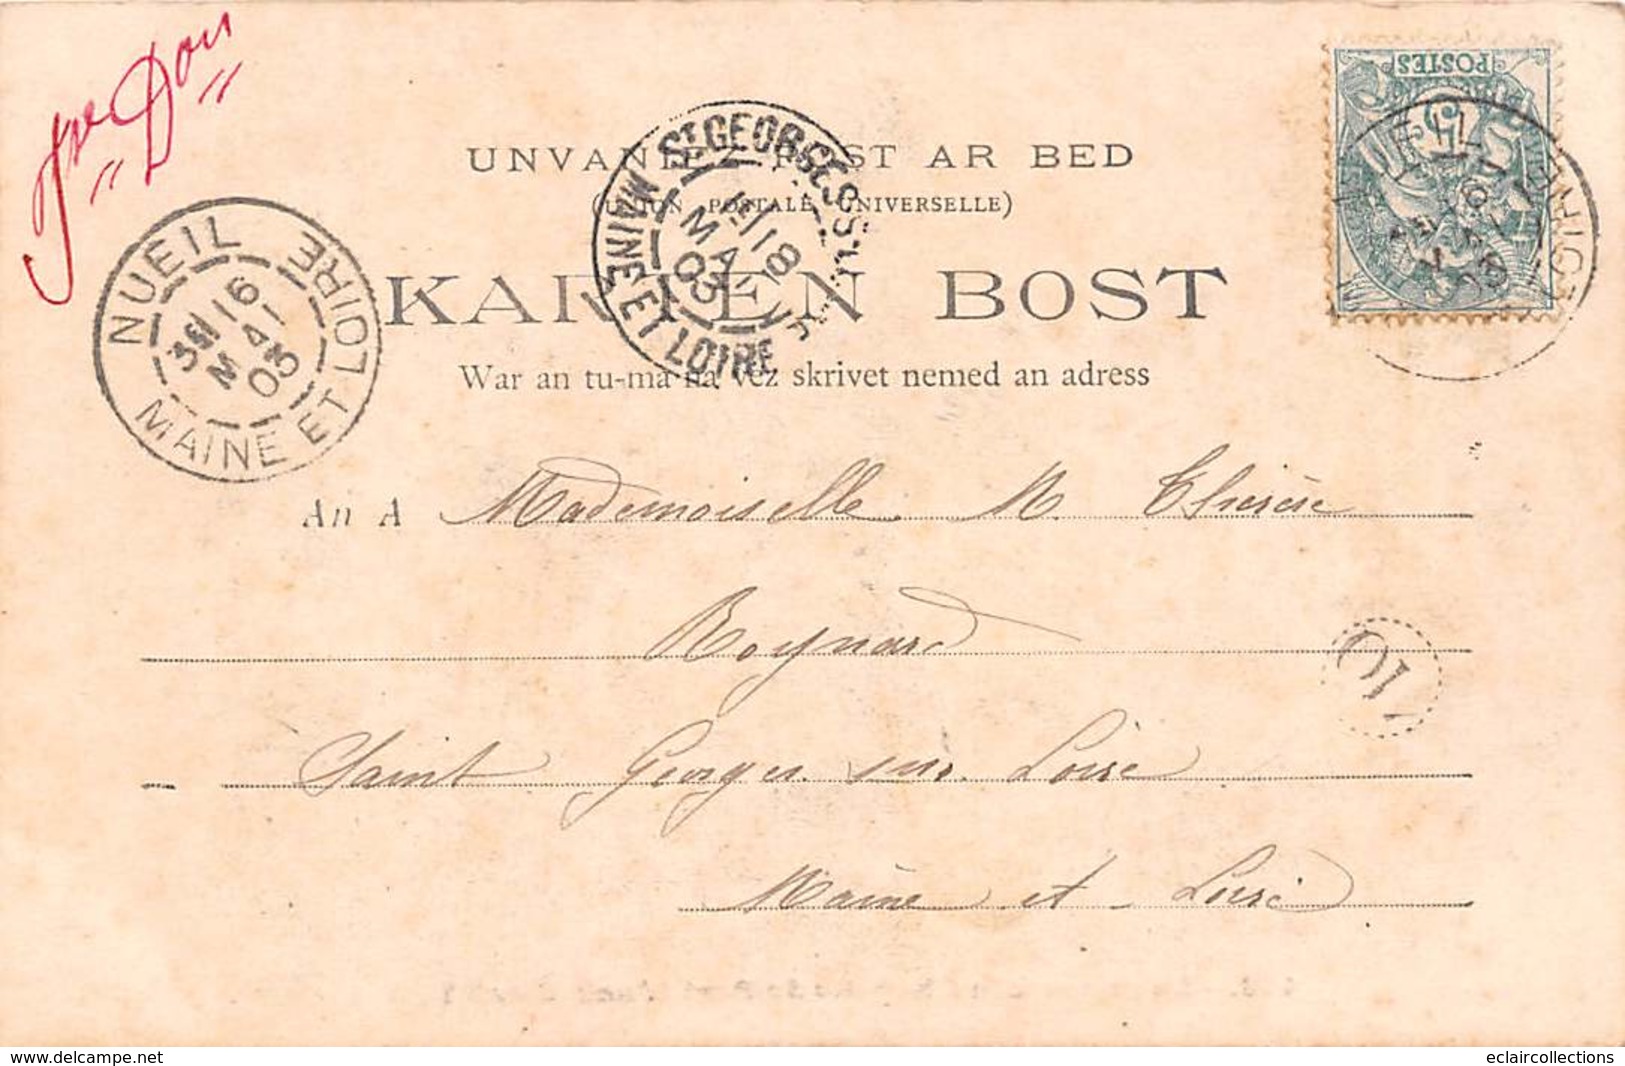 POSTES
UNVANIEZ POST AR BED
(UNION POSTALE UNIVERSELLE)
KARTEN BOST
War an tu-ma na vez skrivet nemed an adress
NUEIL
MAINE ET LOIRE
16
MAI
03
ST GEORGES S
MAINE ET LOIRE
18
MAI
03
An A Mademoiselle M. Therèse
Roynard
Saint Georges sur Loire
Maine et Loire
delcampe.net
eclaircollections